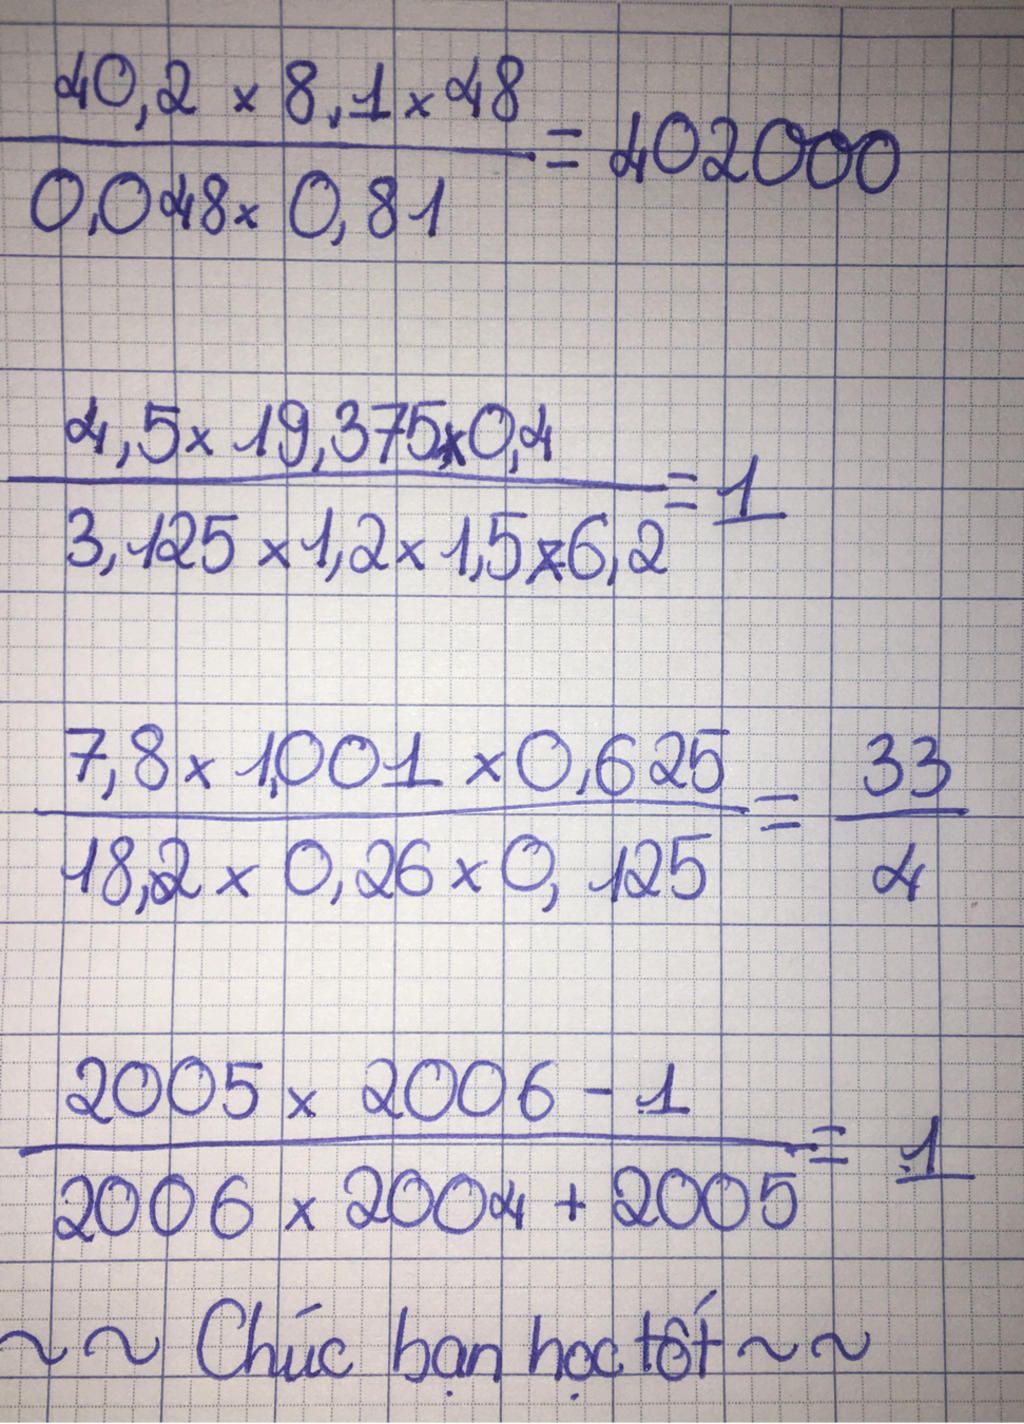 40,2 × 8,1 × 48
= 402000
0,048 × 0,81
4,5 × 19,375 × 0,4
= 1
3,125 × 1,2 × 1,5 × 6,2
7,8 × 1,001 × 0,625
= 33
18,2 × 0,26 × 0,125
4
2005 × 2006 - 1
= 1
2006 × 2004 + 2005
~ ~ Chúc bạn học tốt ~ ~